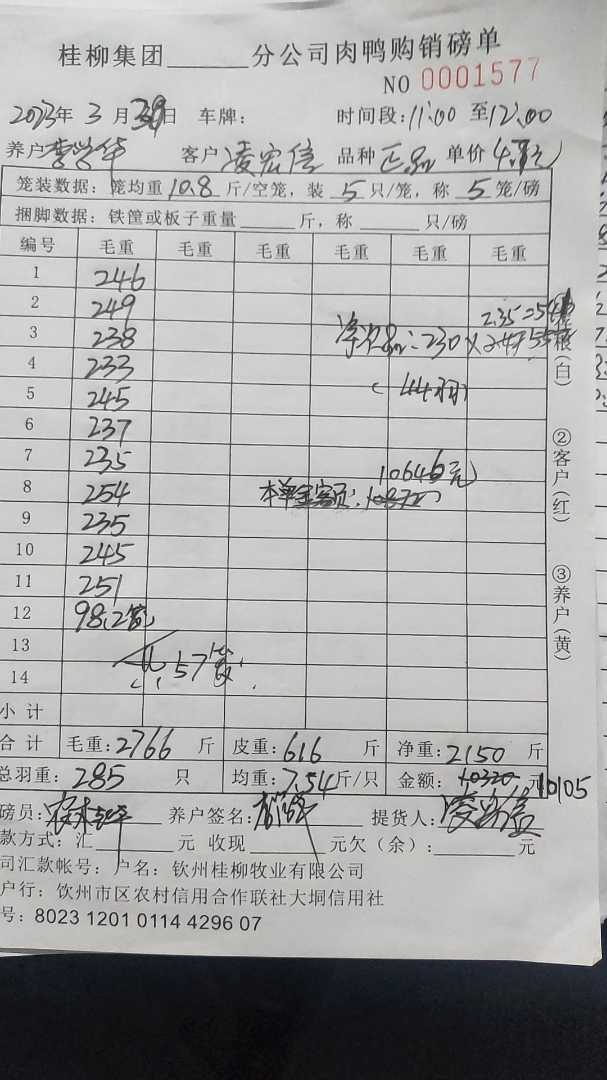 桂柳集团______分公司肉鸭购销磅单
NO 0001577
2023年 3月 日 车牌: 时间段: 11:00 至 12:00
养户 李学华 客户 凌宏信 品种 正品 单价 元
笼装数据: 笼均重 10.8 斤/空笼, 装 5 只/笼, 称 5 笼/磅
捆脚数据: 铁筐或板子重量______斤, 称______只/磅
编号 毛重 毛重 毛重 毛重 毛重 毛重
1 246
2 249
3 238
4 233
5 245
6 237
7 235
8 254
9 235
10 245
11 251
12 98(2笼)
13
14
共57笼
2.35=540
净次品: 230×
(44羽)
10646元
本单金额:
根(白)
②客户(红)
③养户(黄)
小计
合计 毛重: 2766 斤 皮重: 616 斤 净重: 2150 斤
总羽重: 285 只 均重: 7.54 斤/只 金额: 10320 元 10105
磅员: 养户签名: 提货人:
款方式: 汇______元 收现______元欠(余): ______元
司汇款帐号: 户名: 钦州桂柳牧业有限公司
户行: 钦州市区农村信用合作联社大垌信用社
号: 8023 1201 0114 4296 07